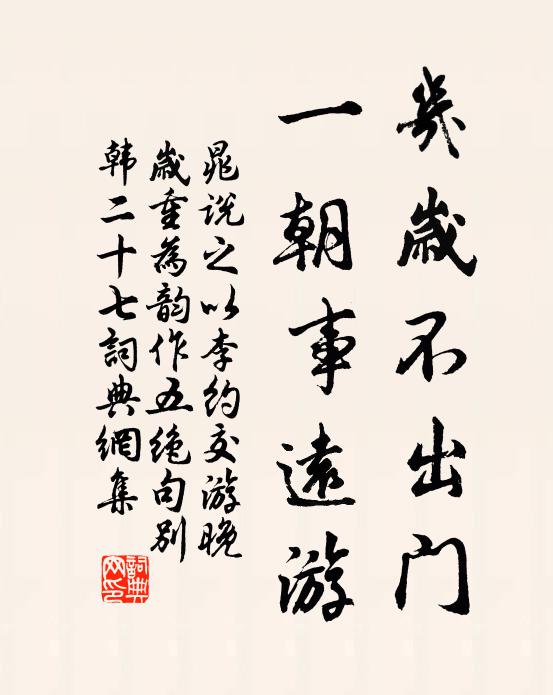 幾歲不出门
一朝事遠游
晁说之以李约交游晚
歲重為韵作五绝句别
韩二十七詞典網集
詞典
网印